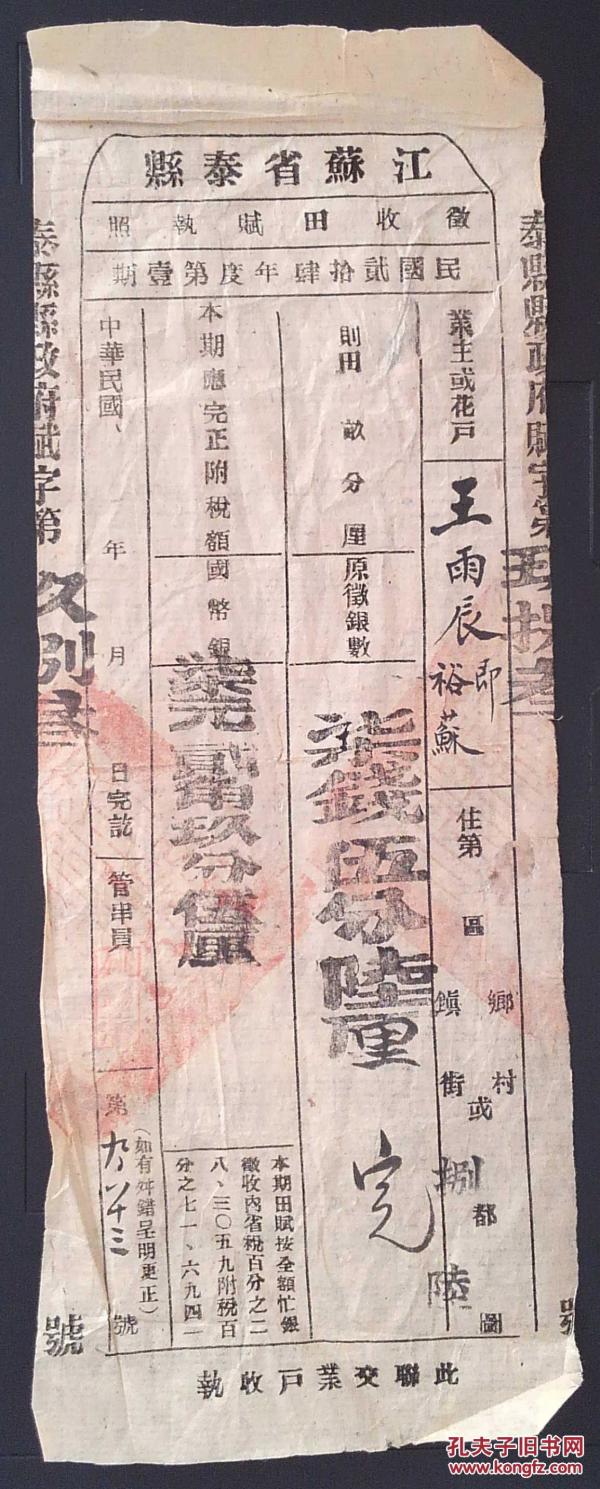 江蘇省泰縣
徵收田賦執照
民國貳拾肆年度第壹期
泰縣縣政府賦字第
號
業主或花戶
王雨辰即裕蘇
住第 區
鄉鎮
村或街
捌都
陸圖
則田 畝 分 厘
原徵銀數
柒錢伍分陸厘
完
本期應完正附稅額
國幣銀
柒元貳角玖分伍厘
本期田賦按全額忙銀
徵收內省稅百分之二
八、三〇五九附稅百
分之七一、六九四一
中華民國、 年 月 日完訖
管串員
第
號
(如有舛錯呈明更正)
泰縣縣政府賦字第
號
此聯交業戶收執
孔夫子旧书网
www.kongfz.com